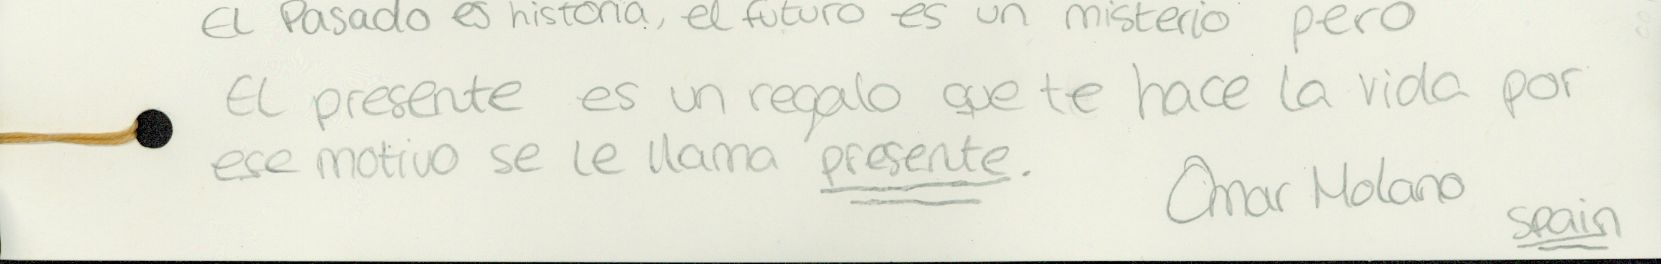 El Pasado es historia, el futuro es un misterio pero
El presente es un regalo que te hace la vida por
ese motivo se le llama presente.
Omar Molano
spain